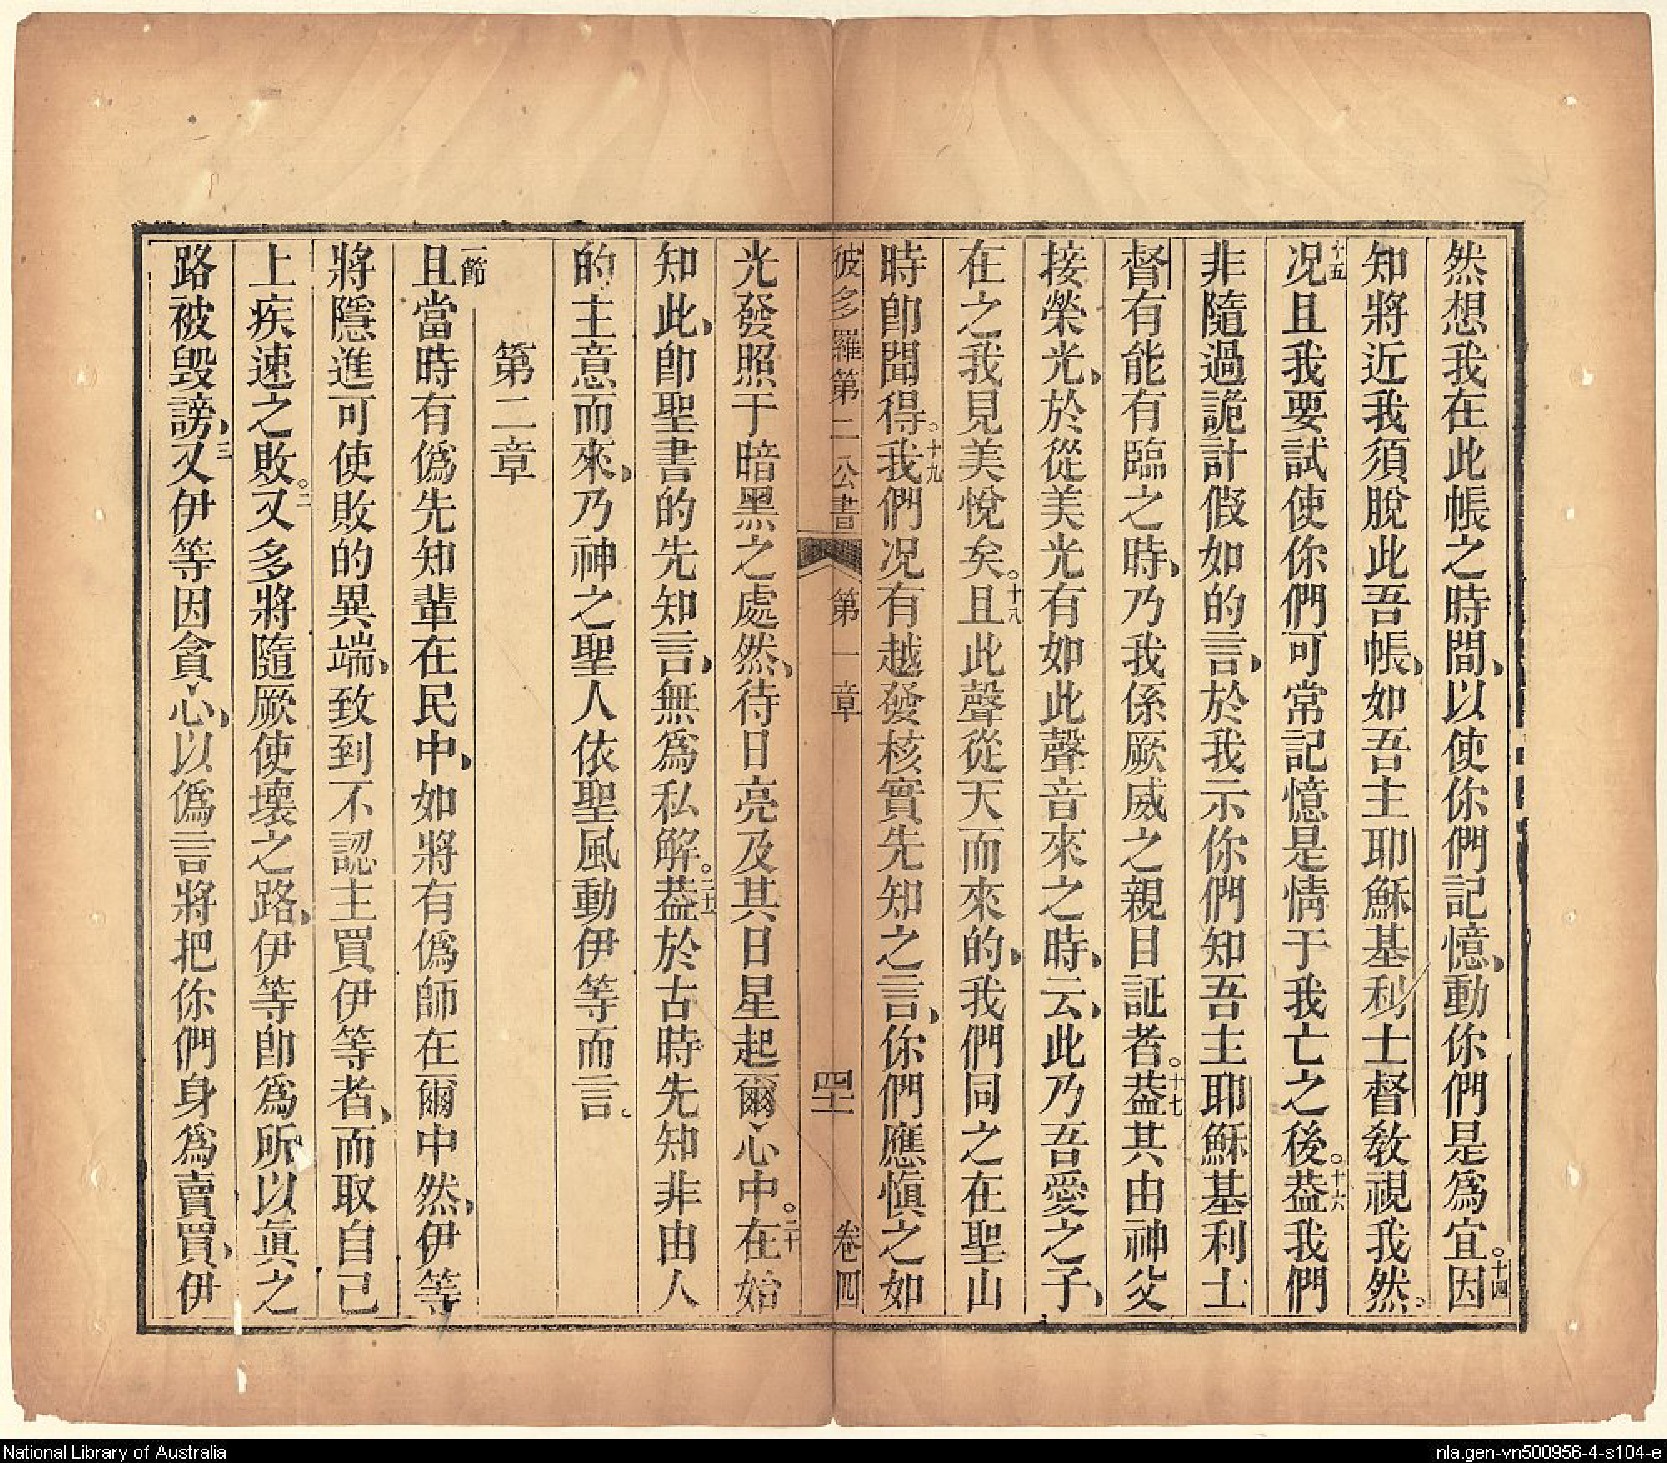 然想我在此帳之時間、以使你們記憶、動你們是爲宜。十四因
知將近我須脫此吾帳、如吾主耶穌基利士督教視我然。
十五况且我要試使你們可常記憶是情于我亡之後。十六葢我們
非隨過詭計假如的言、於我示你們知吾主耶穌基利士
督有能有臨之時、乃我係厥威之親目証者。十七葢其由神父
接榮光、於從美光有如此聲音來之時、云、此乃吾愛之子、
在之我見美悅矣。十八且此聲從天而來的、我們同之在聖山
時卽聞得。十九我們况有越發核實先知之言、你們應慎之如
彼多羅第二公書 第一章 四十二 卷四
光發照于暗黑之處然、待日亮及其日星起爾心中。二十在始
知此、卽聖書的先知言、無爲私解。二十一葢於古時先知非由人
的主意而來、乃神之聖人依聖風動伊等而言。
第二章
一節且當時有僞先知輩在民中、如將有僞師在爾中然、伊等
將隱進可使敗的異端、致到不認主買伊等者、而取自己
上疾速之敗。二又多將隨厥使壞之路、伊等卽爲所以眞之
路被毁謗、三又伊等因貪心、以僞言將把你們身爲賣買、伊
National Library of Australia
nla.gen-vn500956-4-s104-e